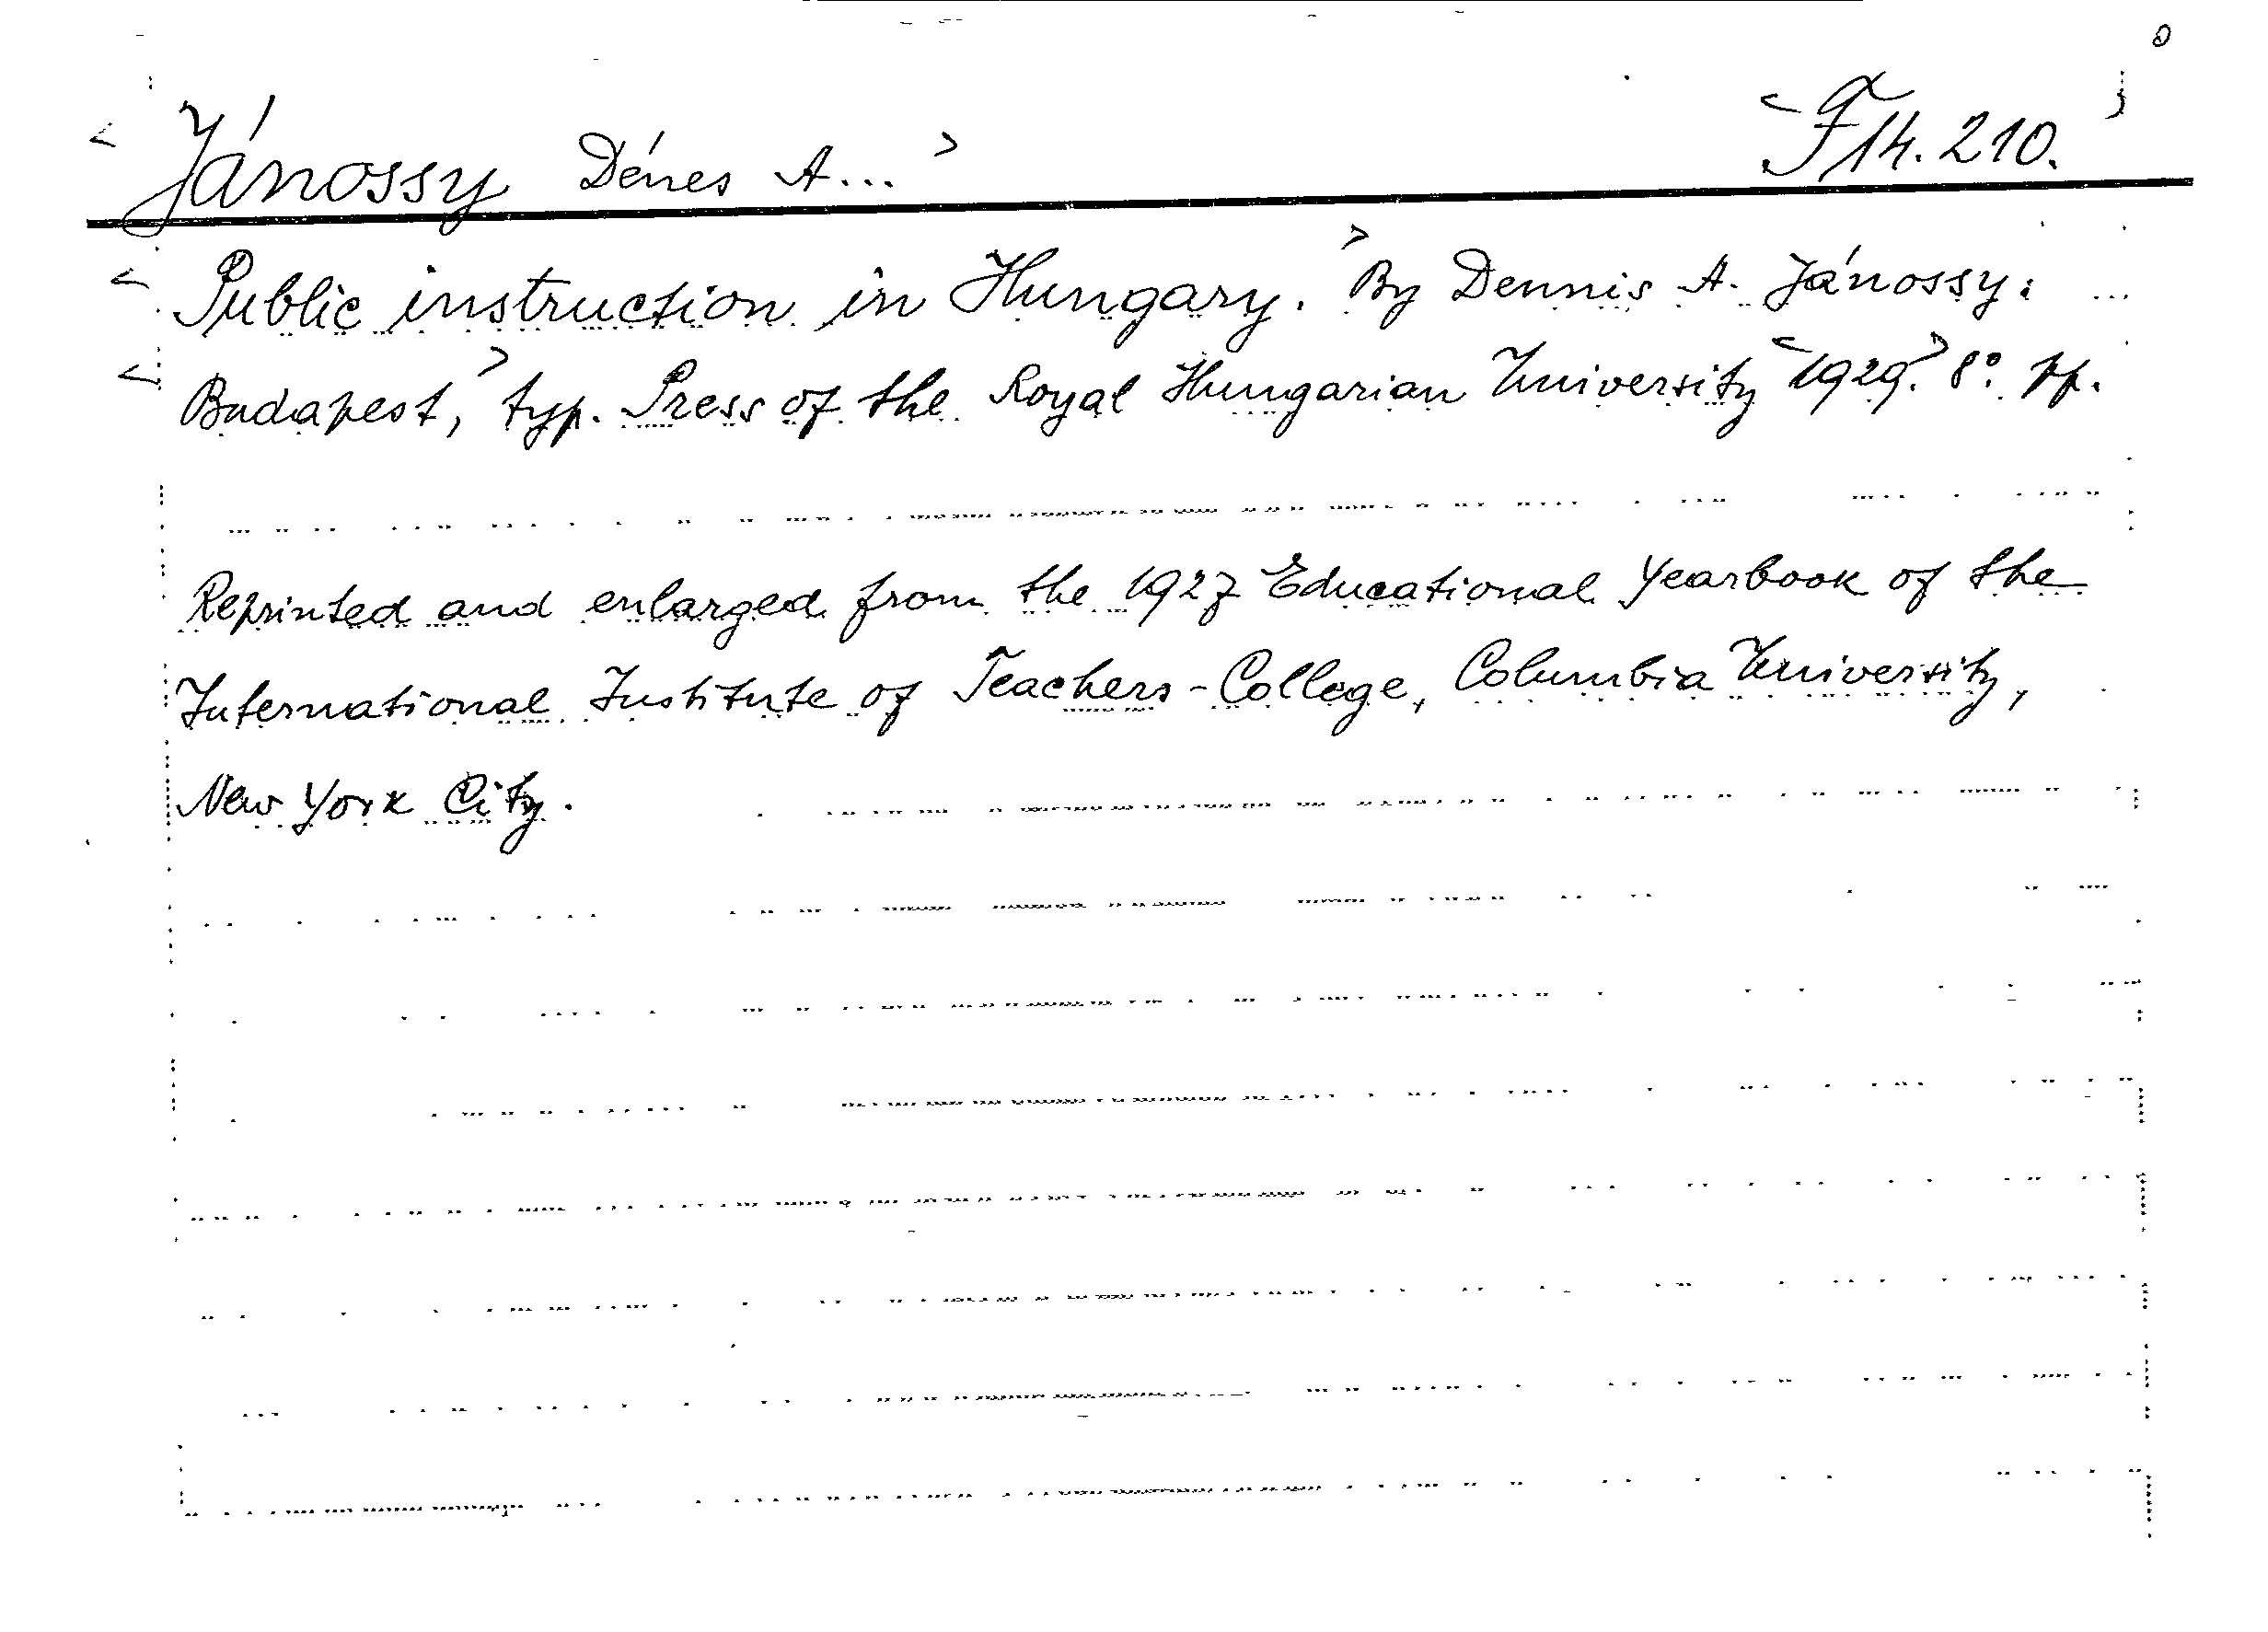 <Jánossy Dénes A...> <F 14.210.>
<Public instruction in Hungary.> By Dennis A. Jánossy.
<Budapest,> typ. Press of the Royal Hungarian University <1929.> 8°. pp.
Reprinted and enlarged from the 1927 Educational Yearbook of the
International Institute of Teachers-College, Columbia University,
New York City.